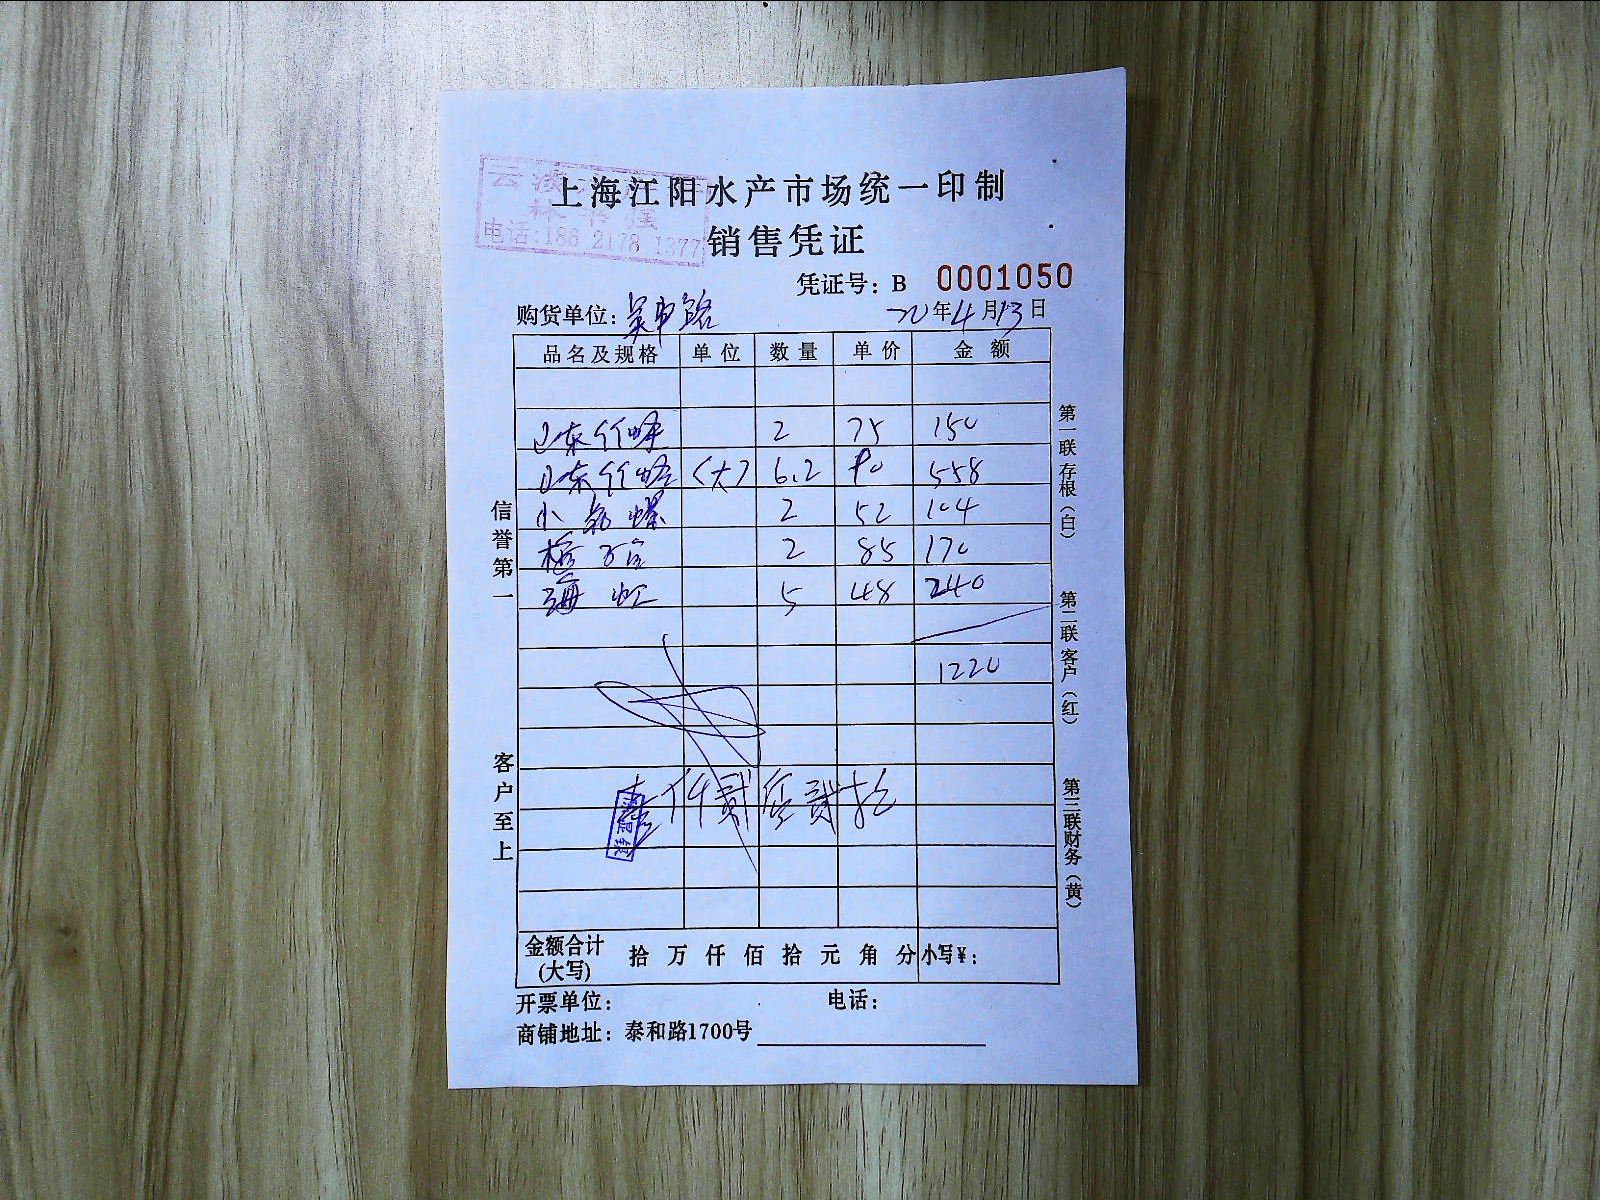 上海江阳水产市场统一印制
电话:186 2178 1377
销售凭证
凭证号：B 0001050
购货单位：吴中路 20年4月13日
品名及规格 单位 数量 单价 金额
山东竹蛏 2 75 150
山东竹蛏 (大) 6.2 90 558
小 螺 2 52 104
2 85 170
海虹 5 48 240
1220
壹仟贰佰贰拾
金额合计(大写) 拾 万 仟 佰 拾 元 角 分 小写¥：
开票单位： 电话：
商铺地址：泰和路1700号
信誉第一
客户至上
第一联存根（白）
第二联客户（红）
第三联财务（黄）